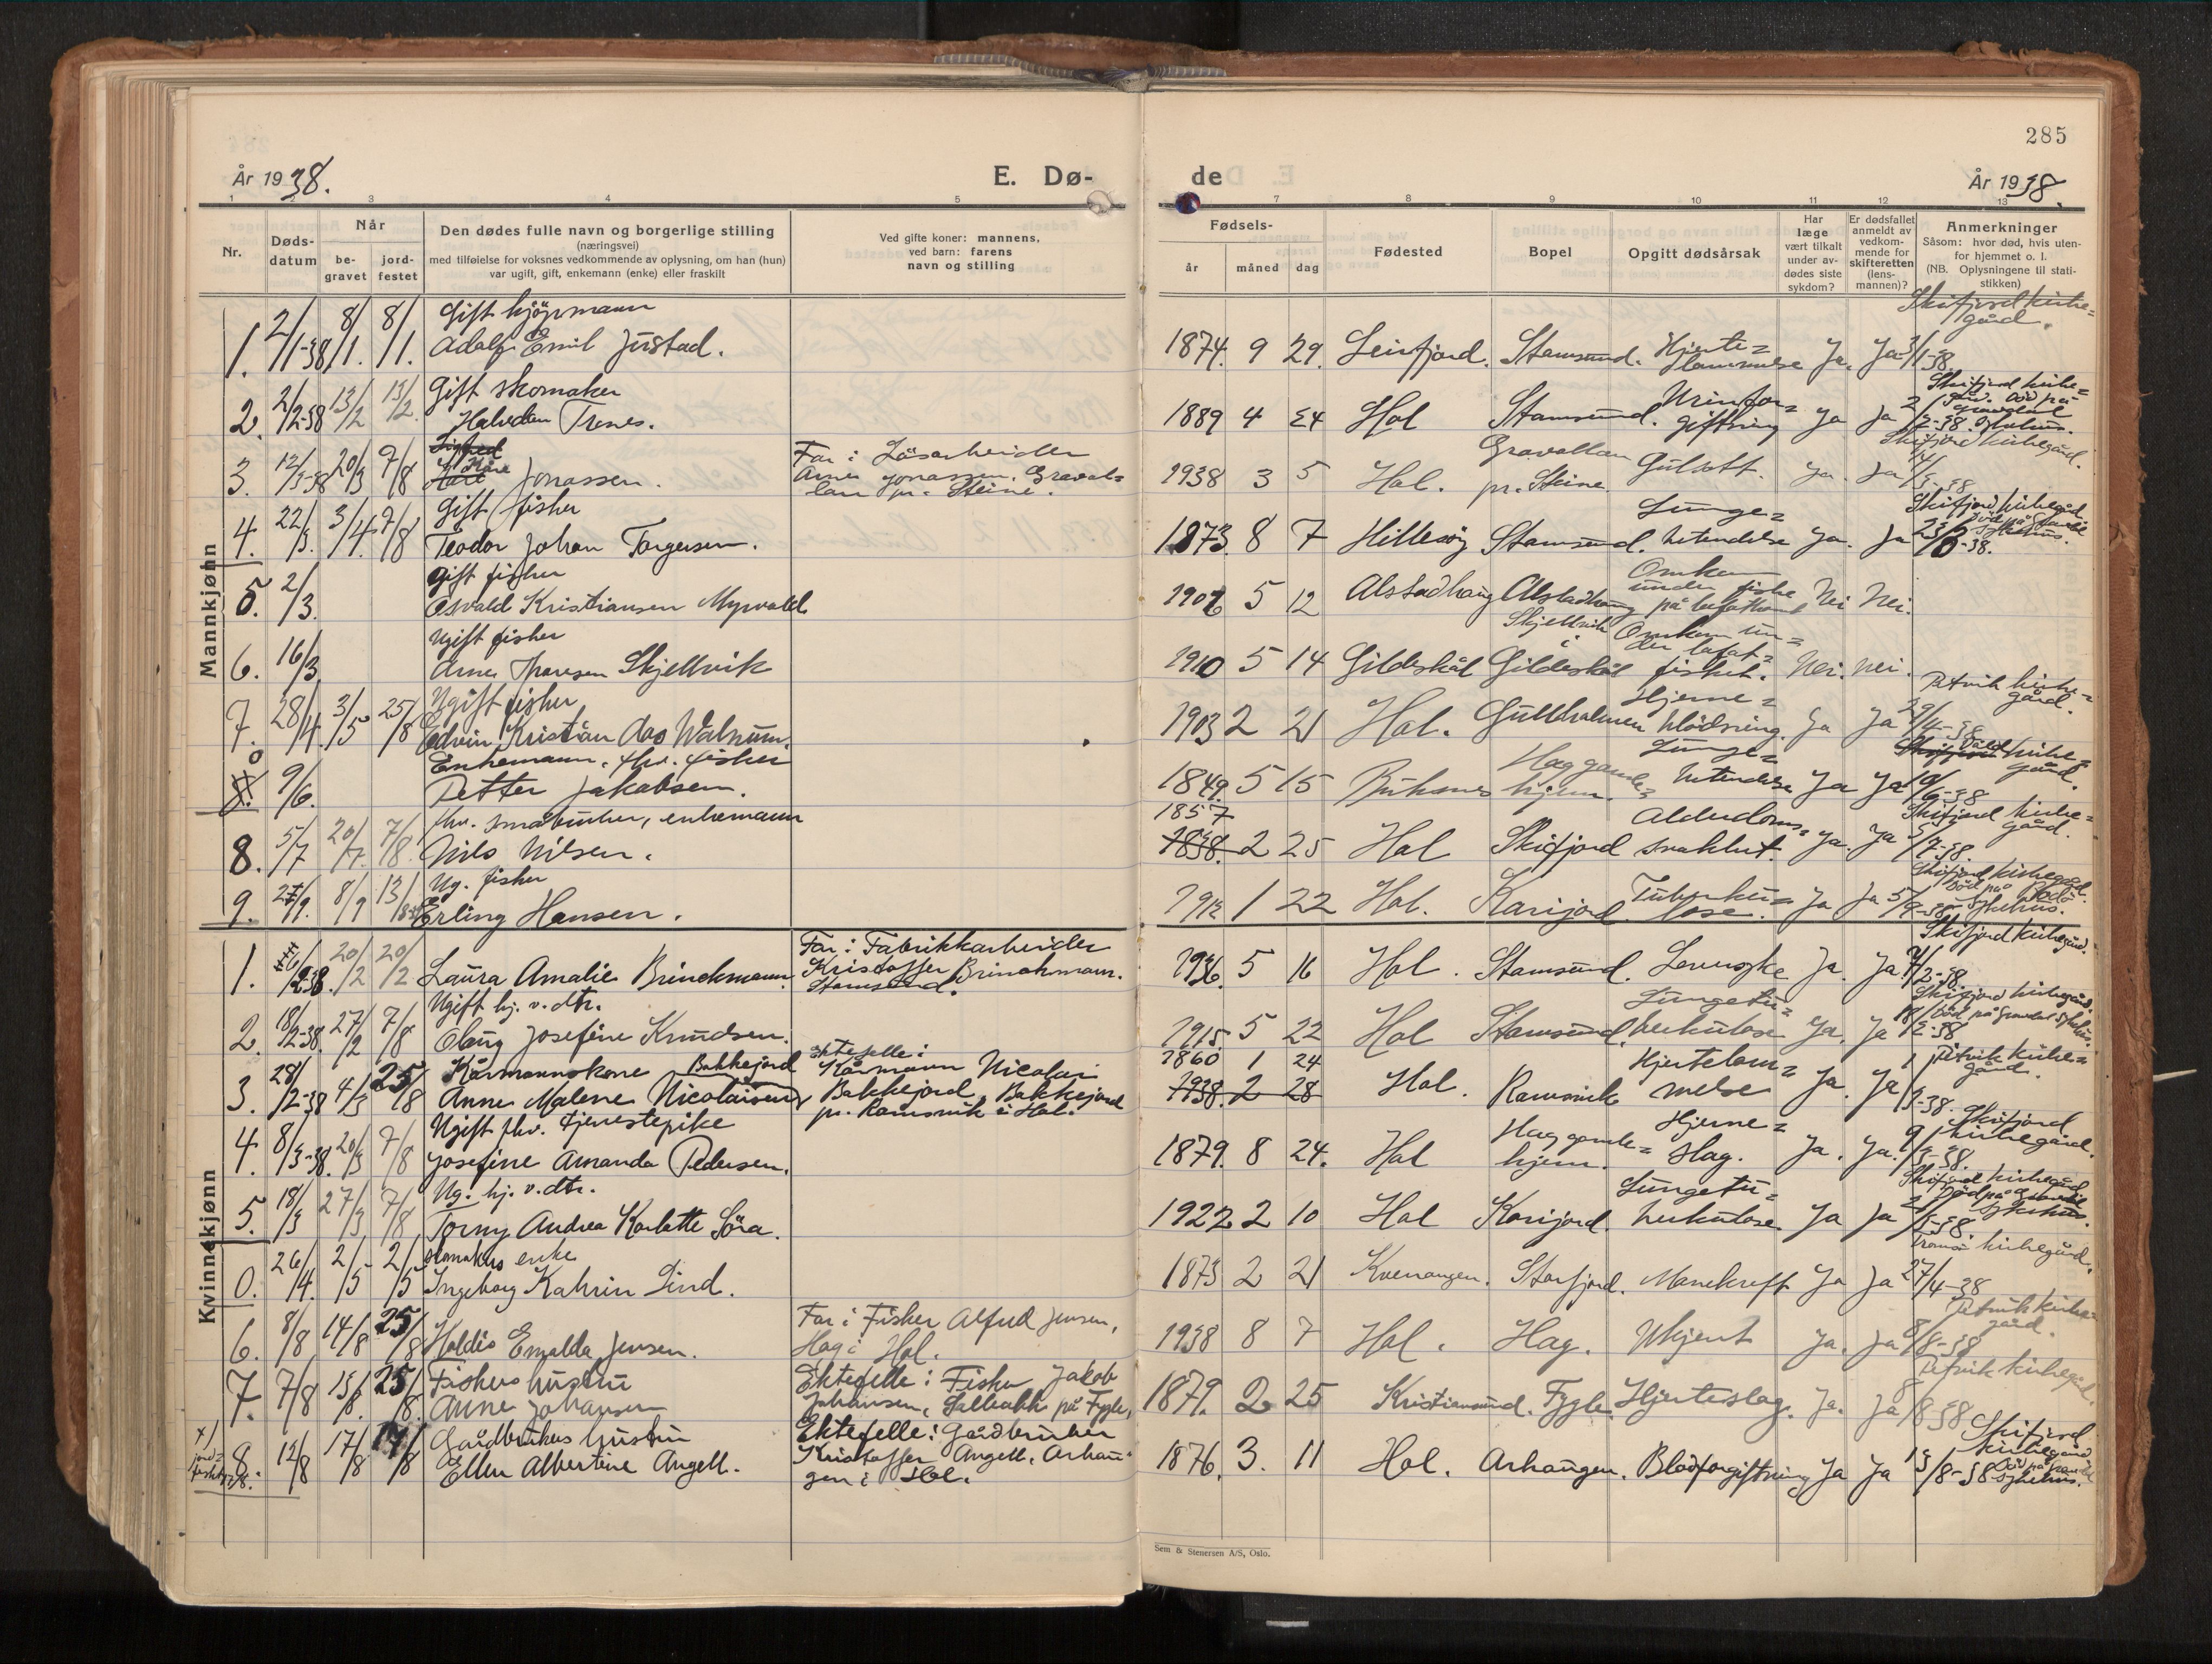 285
År 1938.
E. Dø-
de
År 1938.
1 2 3 4 5 7 8 9 10 11 12 13
Nr.
Døds-
datum
Når
be-
gravet
jord-
festet
Den dødes fulle navn og borgerlige stilling
(næringsvei)
med tilføielse for voksnes vedkommende av oplysning, om han (hun)
var ugift, gift, enkemann (enke) eller fraskilt
Ved gifte koner: mannens,
ved barn: farens
navn og stilling
Fødsels-
år måned dag
Fødested
Bopel
Opgitt dødsårsak
Har
læge
vært tilkalt
under av-
dødes siste
sykdom?
Er dødsfallet
anmeldt av
vedkom-
mende for
skifteretten
(lens-
mannen)?
Anmerkninger
Såsom: hvor død, hvis uten-
for hjemmet o. l.
(NB. Oplysningene til stati-
stikken)
Mannkjønn
Gift kjöpmann
1. 2/1-38 8/1. 8/1. Adolf Emil Justad. 1874. 9 29. Leirfjord. Stamsund. Hjerte=
lammelse Ja. Ja 3/1-38.
Skifjord kirke=
gård.
Gift skomaker
2. 2/2-38 13/2 13/2 Halvdan Trenes. 1889 4 24 Hol Stamsund. Urinfor=
giftning Ja Ja
3. 12/3-38 20/3 7/8 Kåre Jonassen.
Far: Lösarbeider
Arne Jonassen, Graval=
len pr. Steine.
1938 3 5 Hol. Gravollan
pr. Steine. Gulsott. Ja. Ja
Skifjord kirkegård.
Gift fisker
4. 22/3. 3/4. 7/8 Teodor Johan Torgersen. 1873 8 7 Hillesöy Stamsund. Lunge=
betendelse Ja. Ja
Skifjord kirkegård
Gift fisker
5. 2/3. Osvald Kristiansen Myrvold 5 12 Alstadhaug Alstadhaug Omkom
under fiske
på Nei Nei.
Ugift fisker
6. 16/3 Arne Thoresen Skjellvik 1910 5 14 Gildeskål Skjellvik
i
Gildeskål Omkom un=
der lofot=
fisket. Nei. Nei.
Ugift fisker
7. 28/4. 3/5 25/8 Edvin Kristian Aas Walnum. 1903 2 21 Hol. Gullholmen Hjerne=
blödning. Ja Ja 29/4-38
Petvik kirke=
gård.
Enkemann, fhv. fisker
0 9/6. Petter Jakobsen. 1849. 5 15 Buksnes Hag gamle=
hjem. Lunge=
betendelse Ja Ja 10/6-38
kirke=
gård.
fhv. småbruker, enkemann
8. 5/7 20/7. 7/8. Nils Nilsen. 1857 1838. 2 25 Hol Skifjord Alderdoms=
svakhet. Ja. Ja
Skifjord kirke=
gård.
Ug. fisker
9. 8/9 Erling Hansen. 1912 1 22 Hol. Karijord. Tuberku=
lose. Ja Ja 5/9-38
Skifjord kirkegård.
Död på Bodö
sykehus.
Kvinnekjønn
1. 20/2 20/2 Laura Amalie Brinckmann.
Far: Fabrikkarbeider
Kristoffer Brinckmann.
Stamsund.
1936. 5 16 Hol. Stamsund. Ja. Ja
Skifjord kirkegård.
Ugift hj. v. dtr.
2. 18/2-38. 27/2 7/8 Olaug Josefine Knudsen. 1915 5 22 Hol Stamsund. Lungetu=
berkulose Ja. Ja 18/2-38
Skifjord kirkegård.
Död på Gravdal sykehus.
Kårmannskone Bakkejord
3. 28/2-38 4/3 25/8 Anne Malene Nicolaisen
Ektefelle:
Kårmann Nicolai
Bakkejord, Bakkejord
pr. Ramsvik i Hol.
1860 1 24
1938. 2 28 Hol. Ramsvik Hjertelam=
melse Ja. Ja 1/3-38.
Petvik kirke=
gård.
Ugift fhv. tjenestepike
4. 8/3-38. 20/3 7/8 Josefine Amanda Pedersen. 1879. 8 24. Hol Hag gamle=
hjem. Hjerne=
slag. Ja. Ja. 9/3-38.
Skifjord
kirkegård.
Ug. hj. v. dtr.
5. 18/3 27/3 7/8 Torny Andrea Karlotte Söra. 1922 2 10 Hol Karijord. Lungetu=
berkulose. Ja Ja
Skifjord kirkegård
Död på Gravdal
sykehus.
Skomakers enke
0. 26/4. 2/5 2/5 Ingeborg Katrin Lind. 1873 2 21 Kvenangen. Storfjord. Mavekreft Ja Ja 27/4-38
Tromsö kirkegård.
6. 8/8 14/8 25/8 Haldis Esmalda Jensen.
Far: Fisker Alfred Jensen,
Hag i Hol.
1938 8 7 Hol. Hag. Ukjent Ja. Ja 8/8-38
Petvik kirke=
gård.
7. 7/8 15/8. 25/8. Fiskers hustru
Anne Johansen
Ektefelle: Fisker Jakob
Johansen, på Fygle,
1879. 2 25 Kristiansund. Fygle. Hjerteslag. Ja. Ja 8/8-38
Petvik kirkegård.
x)
jord=
festet
8. 12/8 17/8 17/8 Gårdbrukers hustru
Ellen Albertine Angell.
Ektefelle: Gårdbruker
Kristoffer Angell, Arhau=
gen i Hol.
1876. 3. 11 Hol. Arhaugen. Blodforgiftning Ja Ja 13/8-38
Skifjord
kirkegård
Död på Gravdal
sykehus.
Sem & Stenersen A/S, Oslo.